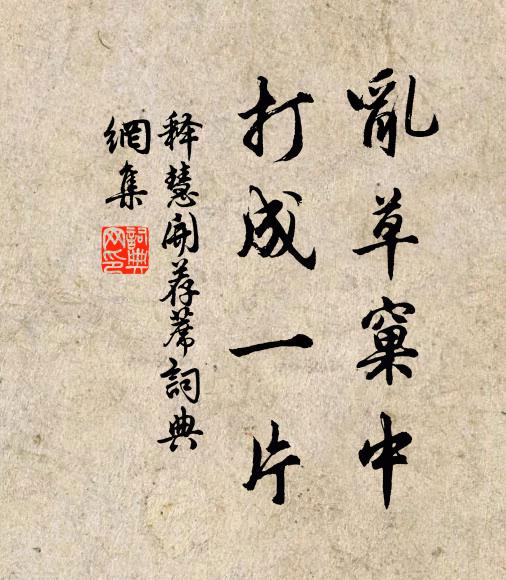 亂草窠中
打成一片
释慧開荐蓆詞典
網集
詞典
网印